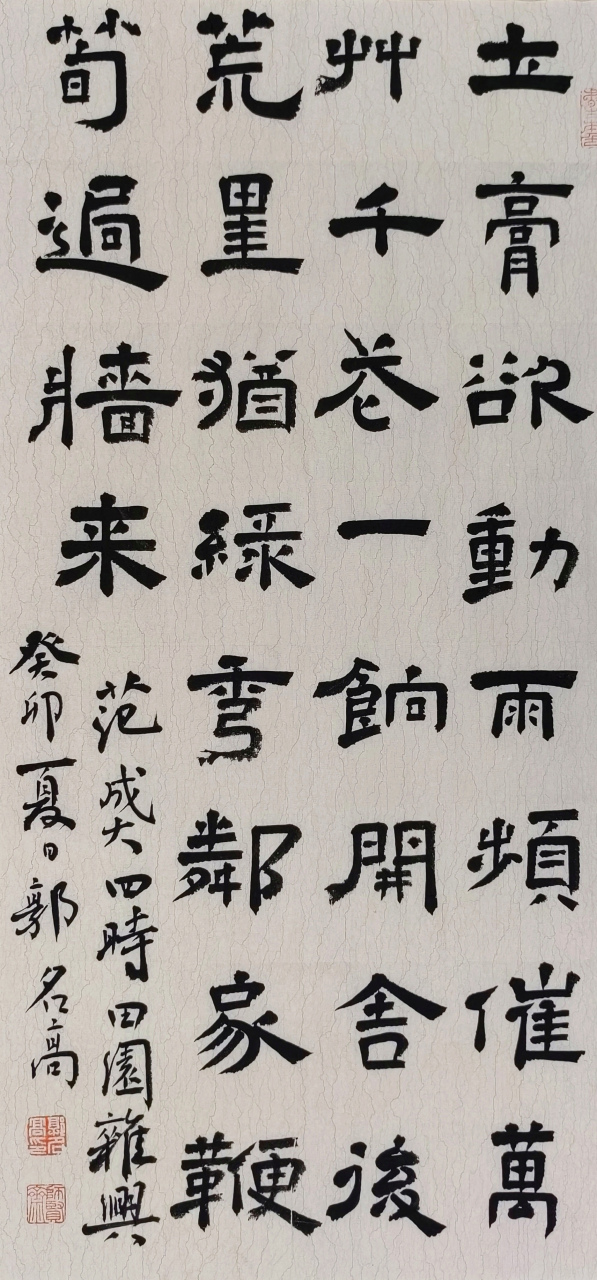 土膏欲動雨頻催萬
艸千花一餉開舍後
荒畦猶綠秀鄰家鞭
筍過牆来
范成大四時田園雜興
癸卯夏日郭名高